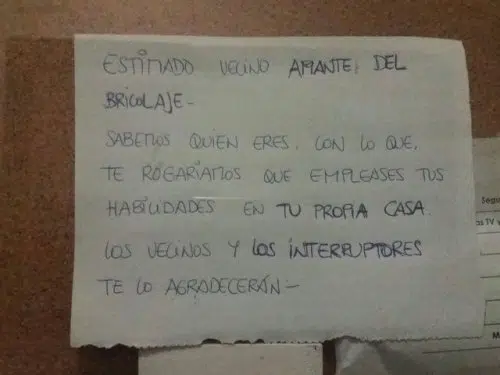 ESTIMADO VECINO AMANTE DEL
BRICOLAJE-
SABEMOS QUIEN ERES, CON LO QUE,
TE ROGARIAMOS QUE EMPLEASES TUS
HABILIDADES EN TU PROPIA CASA.
LOS VECINOS Y LOS INTERRUPTORES
TE LO AGRADECERÁN-
Segu
os TV
M